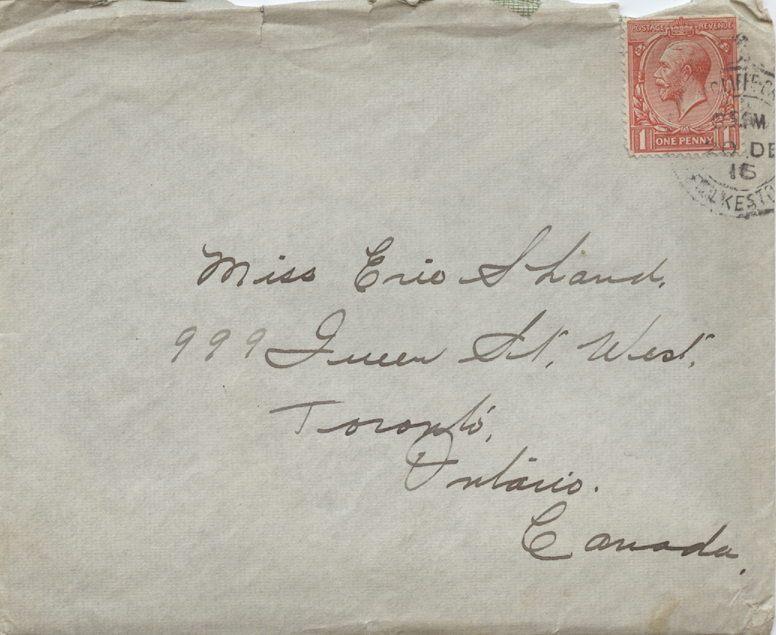 POSTAGE REVENUE
1 ONE PENNY 1
PM
0 DE
16
LKESTO
Miss Eric Shand,
999 Queen St, West,
Toronto,
Ontario.
Canada,